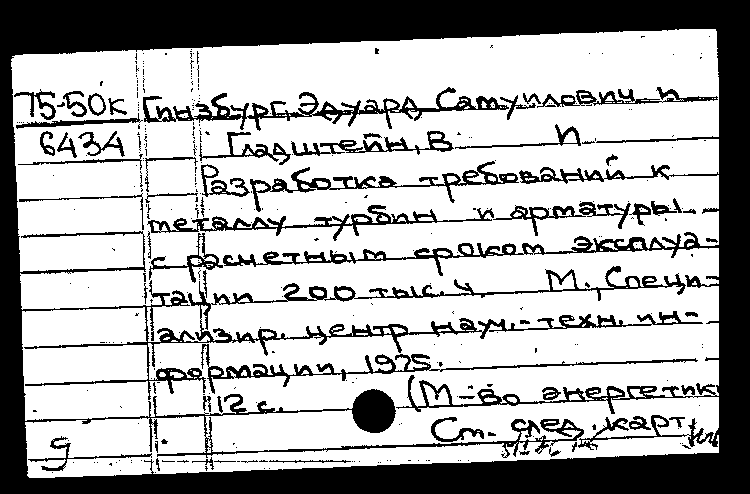 75-50к Гинзбург, Эдуард Самуилович и
6434 Гладштейн, В. И
Разработка требований к
металлу турбин и арматуры
с расчетным сроком эксплуа-
тации 200 тыс. ч. М., Специ-
ализир. центр науч.-техн. ин-
формации, 1975.
12 с. (М-во энергетик
См. след. карт.
9